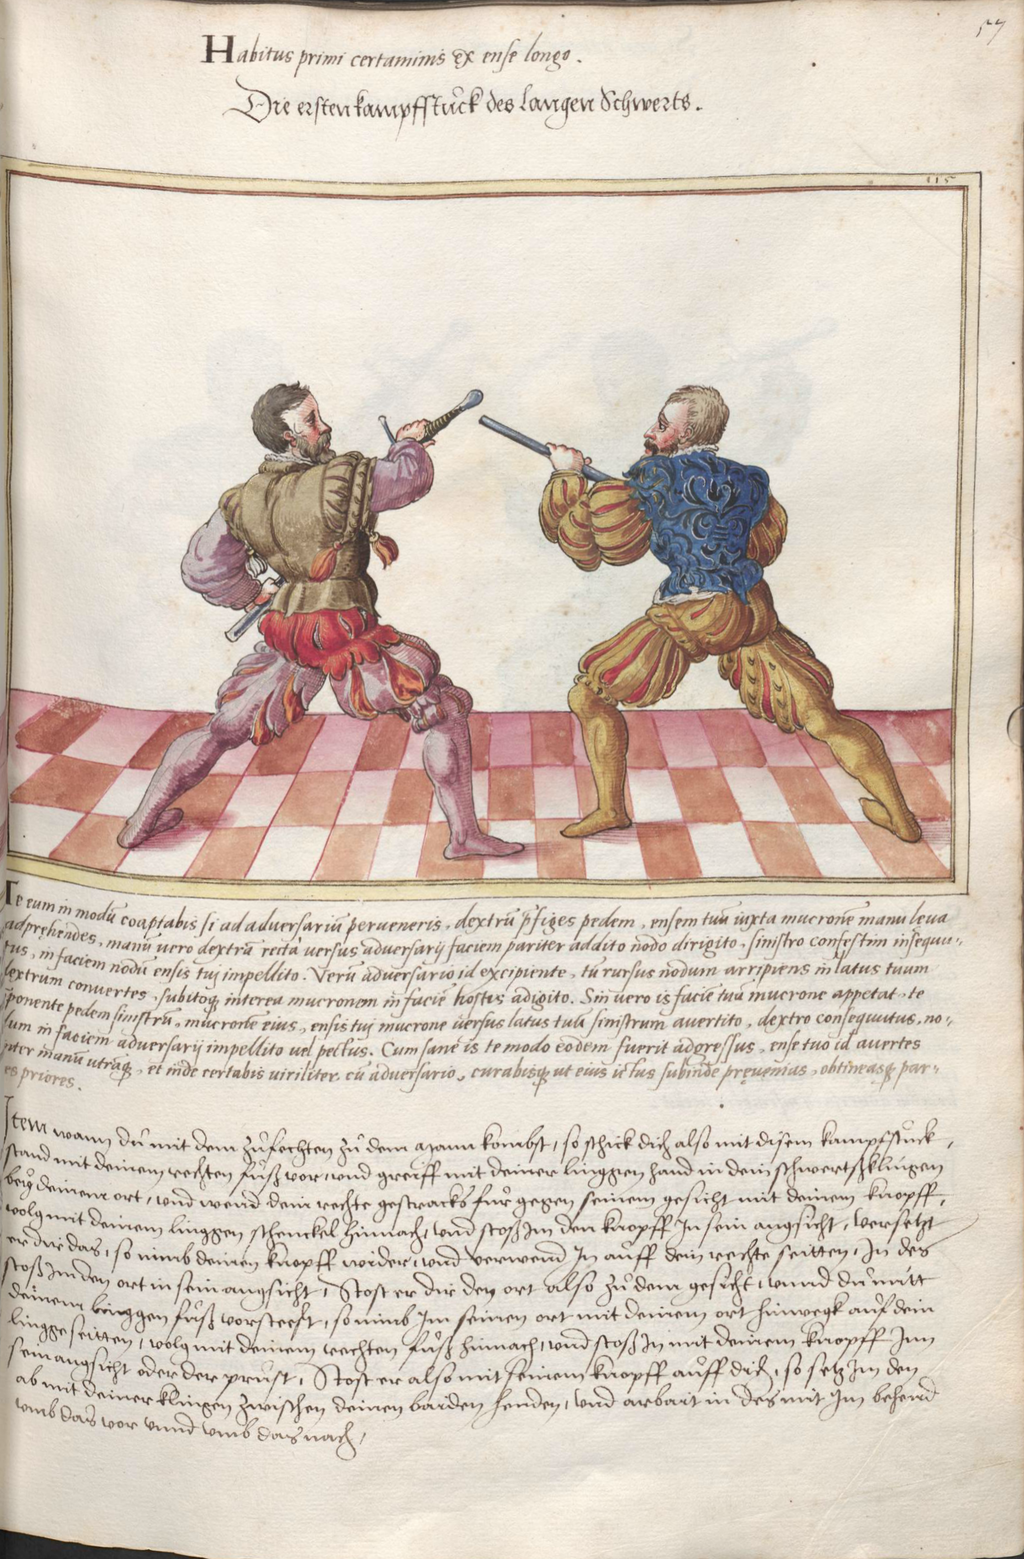 57
Habitus primi certaminis ex ense longo.
Die ersten kampfstuck des langen Schwerts.
115
Te eum in modū coaptabis si ad adversariū perveneris, dextrū p̄figes pedem, ensem tuū iuxta mucronē manu leva
adprehendes, manū vero dextrā recta versus adversarij faciem pariter addito nodo dirigito, sinistro confestim insequu-
tus, in faciem nodū ensis tuj impellito. Verū adversario id excipiente, tū rursus nodum arripiens in latus tuum
dextrum convertes, subitoq̃ interea mucronem in faciē hostis adigito. Sin vero is faciē tuā mucrone appetat, te
ponente pedem sinistrū, mucronē eius, ensis tuj mucrone versus latus tuū sinistrum avertito, dextro consequutus, no-
dum in faciem adversarij impellito vel pectus. Cum sane is te modo eodem fuerit adgressus, ense tuo id avertes
inter manū utrāq̃, et inde certabis viriliter cū adversario, curabisq̃ ut eius ictus subinde prevenias, obtineasq̃ par-
es priores.
Item wann du mit dem zufechten zu dem mann kombst, so schick dich also mit disem kampfstuck,
stand mit deinem rechten fuß vor, und greiff mit deiner linggen hand in dein schwertsklingen
bey deinem ort, und wend dein rechte gestracks für gegen seinem gesicht mit deinem knopff,
volg mit deinem linggen schenckel hinnach, und stoß im den knopff In sein angsicht, versetzt
er dir das, so nimb deinen knopff wider, und verwend In auff dein rechte seitten, In des
stoß im den ort in sein angsicht, Stost er dir den ort also zu dem gesicht, unnd du mitt
deinem linggen fuß vorsteest, so nimb Im seinen ort mit deinem ort hinwegk auf dein
lingge seitten, volg mit deinem rechten fuß hinnach, und stoß In mit deinem knopff Inn
sein angsicht oder der prust, Stost er also mit seinem knopff auff dich, so setz Im den
ab mit deiner klingen zwischen deinen baiden henden, und arbait in des mit Im behend
umb das vor unnd umb das nach,